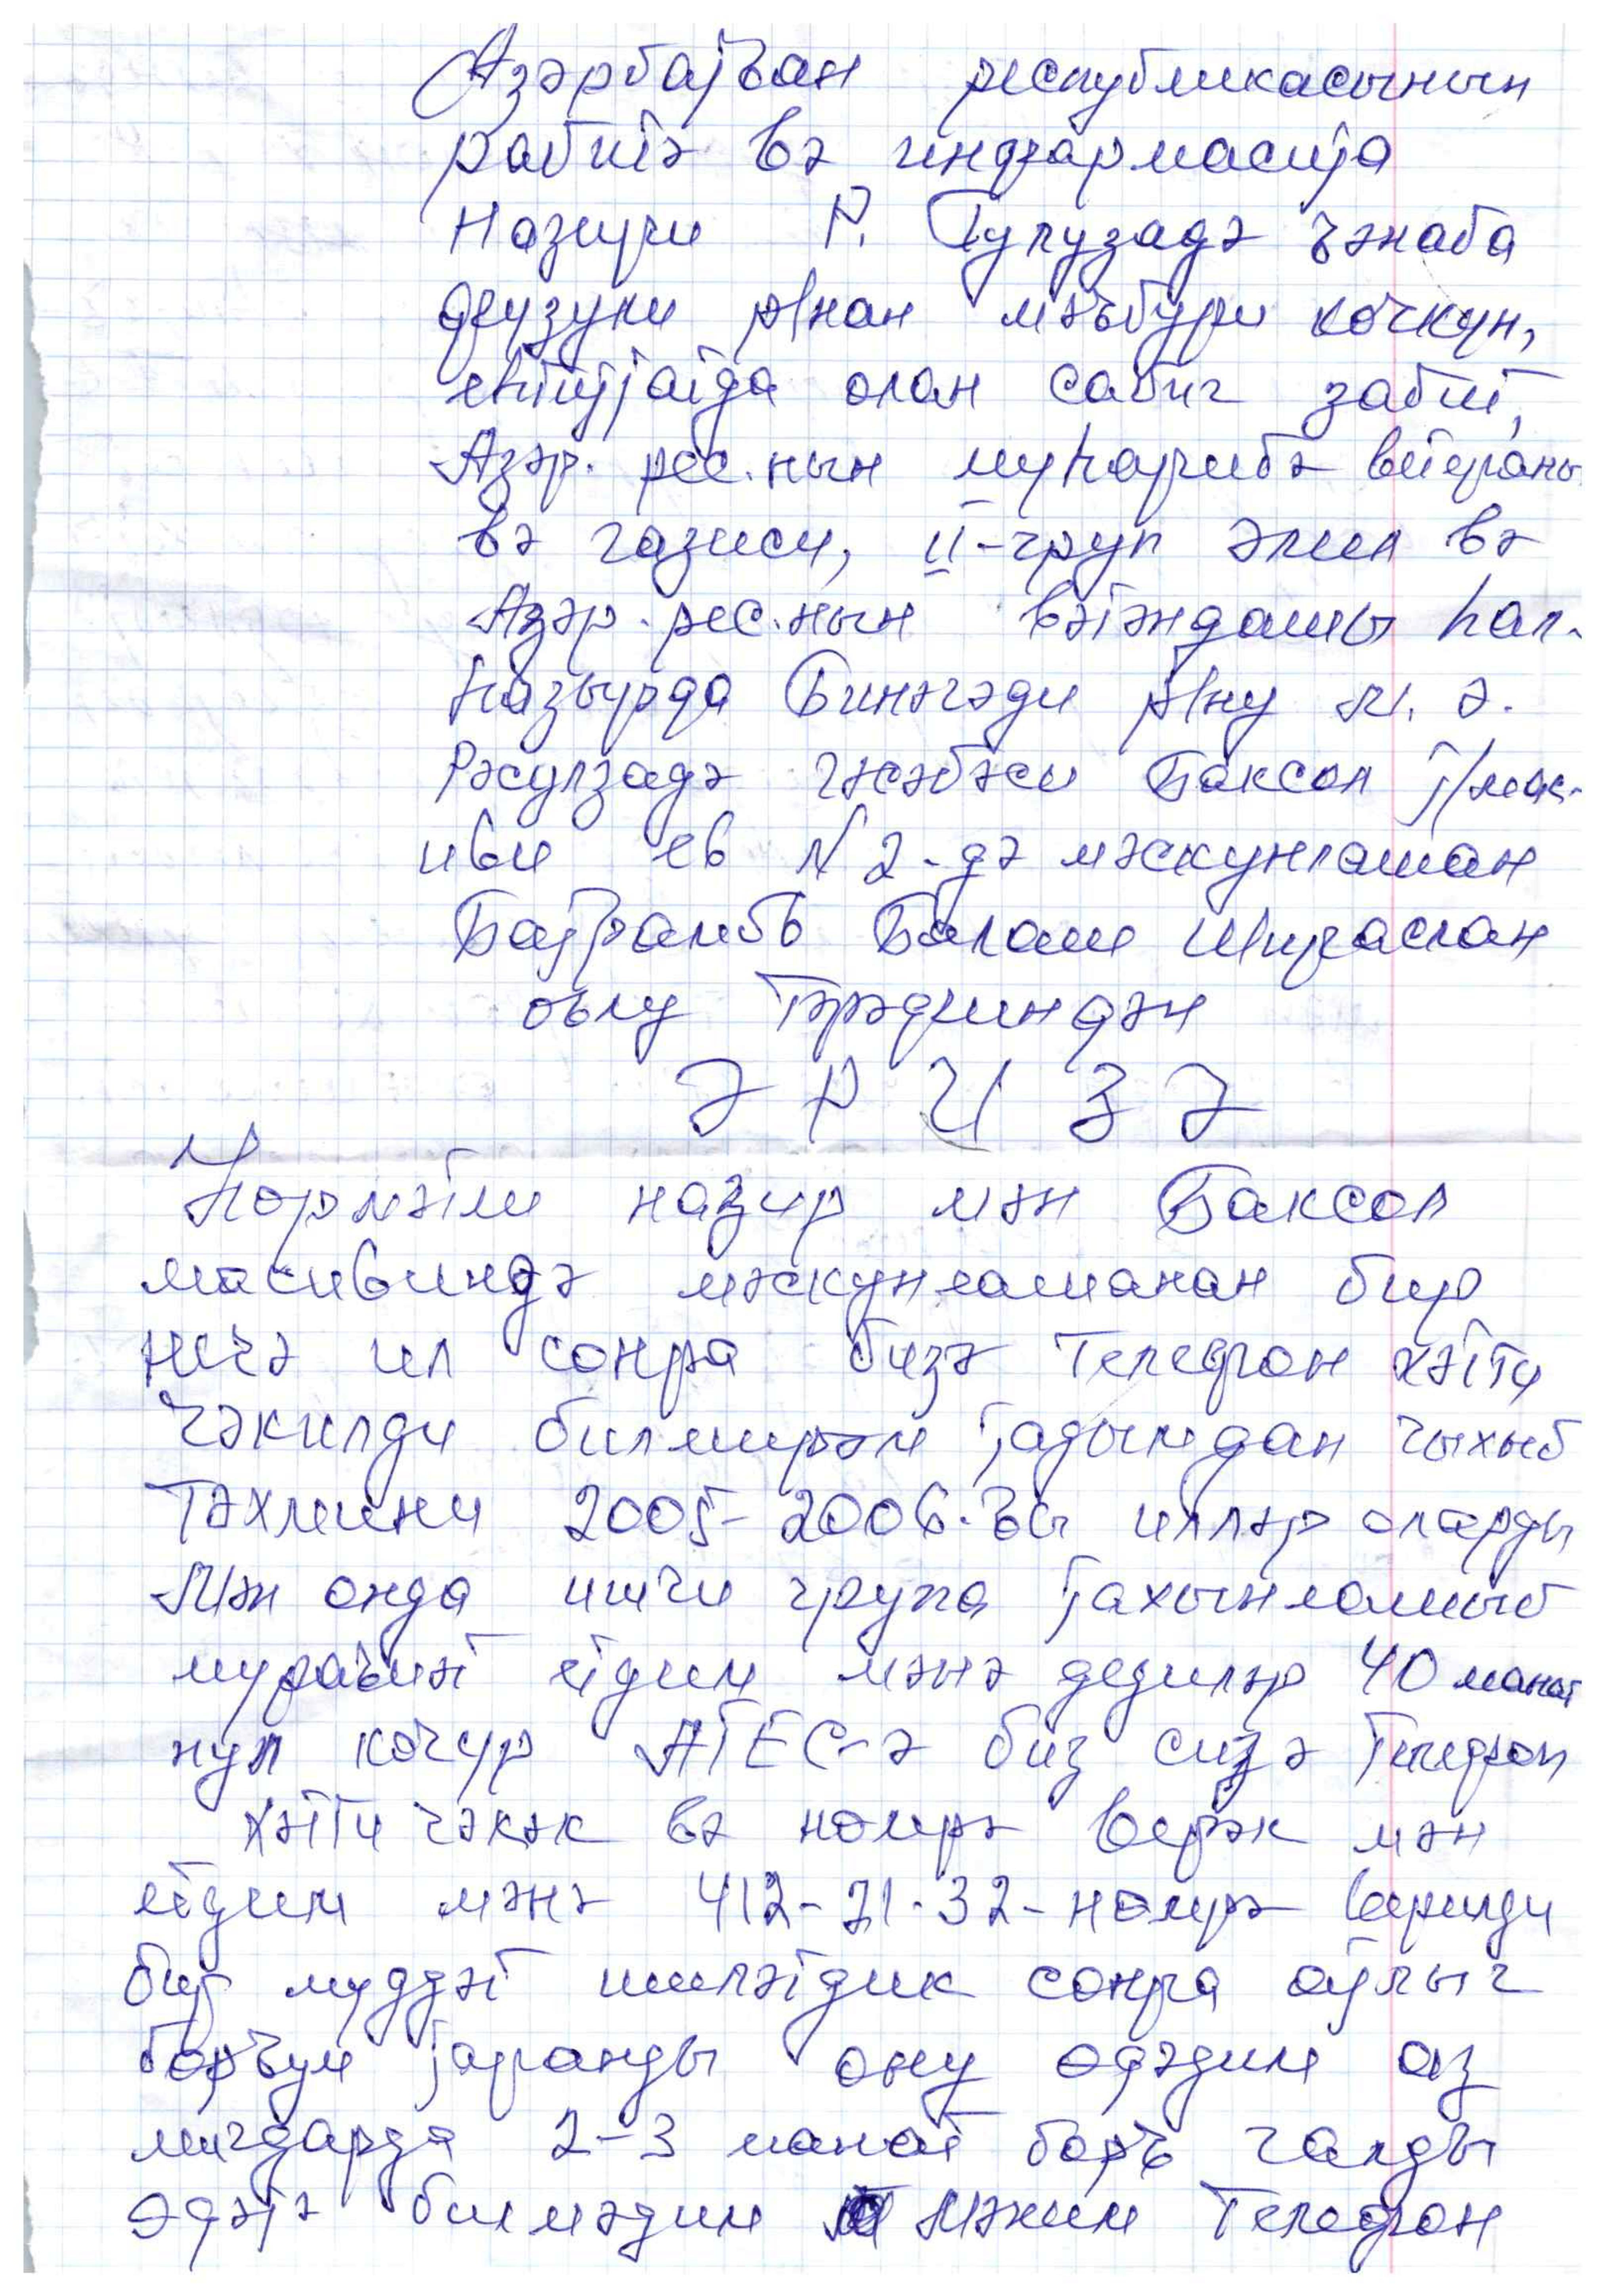 Азәрбајҹан республикасынын
рабитә вә информасија
Назири Р. Гулузадә ҹәнаба
Физули р/нан мәҹбури көчкүн,
еһтијјатда олан сабиг забит,
Азәр. рес.нын муһарибә ветераны
вә газиси, II-груп әлил вә
Азәр.рес.нын вәтәндашы һал-
һазырда Бинәгәди р/ну М. Ә.
Рәсулзадә гәсәбәси Баксол ј/мас-
иви ев N 2-дә мәскунлашан
Бајрамов Балаш Широслан
оғлу тәрәфиндән
Ә Р И З Ә
Һөрмәтли назир мән Баксол
масивиндә мәскунлашанан бир
нечә ил сонра бизә телефон хәтти
чәкилди билмирәм јадымдан чыхыб
тәхмини 2005-2006-ҹы илләр оларды
Мән онда ишчи група јахынлашыб
мураҹиәт етдим мәнә дедиләр 40 манат
пул көчүр АТЕС-ә биз сизә телефон
хәтти чәкәк вә нөмрә верәк мән
етдим мәнә 412-21-32-нөмрә верилди
бир муддәт ишләтдик сонра ајлыг
борҹум јаранды ону өдәдим аз
мигдарда 2-3 манат борҹ галды
Өдәјә билмәдим Мәним телефон